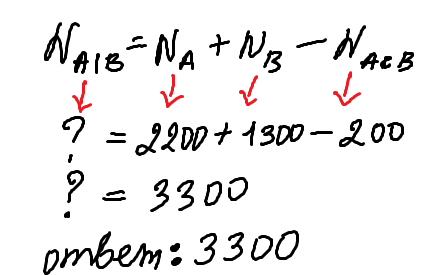 N_A|B = N_A + N_B - N_A&B
? = 2200 + 1300 - 200
? = 3300
ответ: 3300